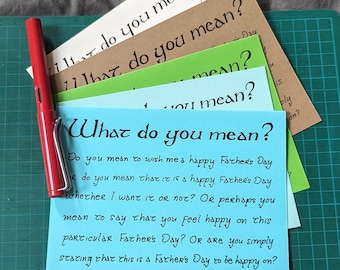 What do you mean?
What do you mean?
you mean?
mean?
What do you mean?
Do you mean to wish me a happy Father's Day
or do you mean that it is a happy Father's Day
whether I want it or not? Or perhaps you
mean to say that you feel happy on this
particular Father's Day? Or are you simply
stating that this is a Father's Day to be happy on?